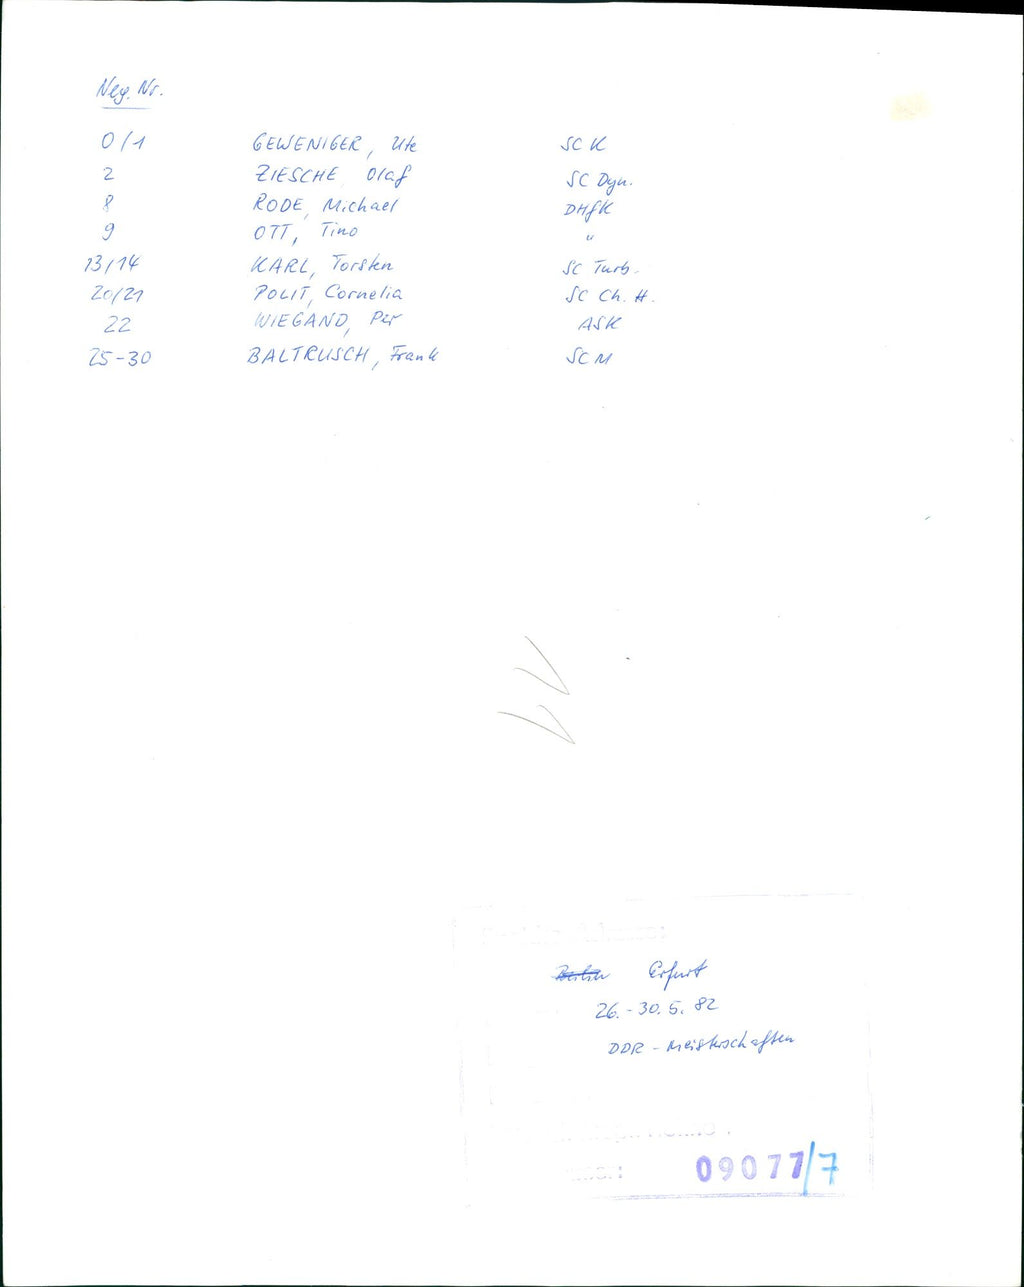 Neg. Nr.
0/1 GEWENIGER, Ute SC K
2 ZIESCHE, Olaf SC Dyn.
8 RODE, Michael DHfK
9 OTT, Tino "
13/14 KARL, Torsten SC Turb.
20/21 POLIT, Cornelia SC Ch. H.
22 WIEGAND, Per ASK
25-30 BALTRUSCH, Frank SC M
Berlin Erfurt
26.-30.5.82
DDR-Meisterschaften
09077/7